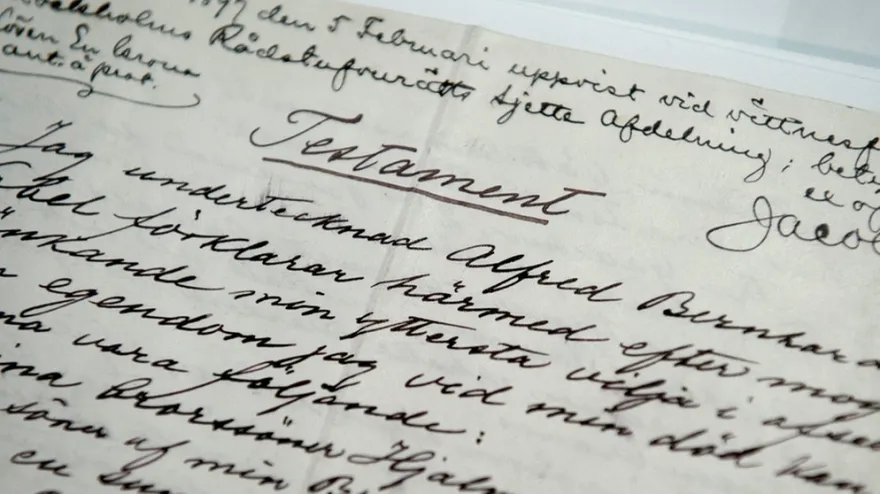 1897 den 5 Februari uppvist vid vittnesf
Stockholms Rådstufvurätts sjette Afdelning; bety
Lösen En krona
ant. à prot.
Jacob
Testament
Jag undertecknad Alfred Bernhard
Nobel förklarar härmed efter mog
änkande min yttersta vilja i afse
egendom jag vid min död kan
na vara följande:
ina brorssöner Hjalm
söner af min Br
en sum